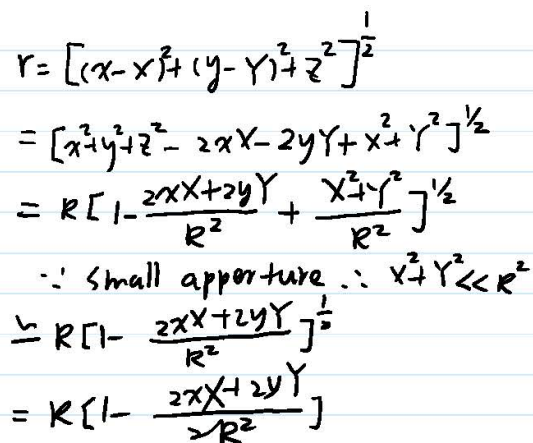 r = [(x-X)²+(y-Y)²+z²]^{1/2}
= [x²+y²+z²-2xX-2yY+X²+Y²]^{1/2}
= R[1-\frac{2xX+2yY}{R²}+\frac{X²+Y²}{R²}]^{1/2}
∵ small apperture ∴ X²+Y²<<R²
≃ R[1-\frac{2xX+2yY}{R²}]^{1/2}
= R[1-\frac{2xX+2yY}{2R²}]